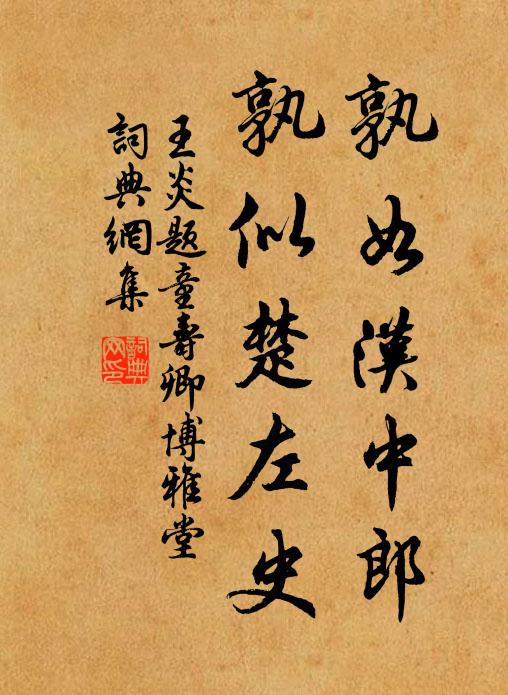 孰如漢中郎
孰似楚左史
王炎题童壽卿博雅堂
詞典網集
詞典網印